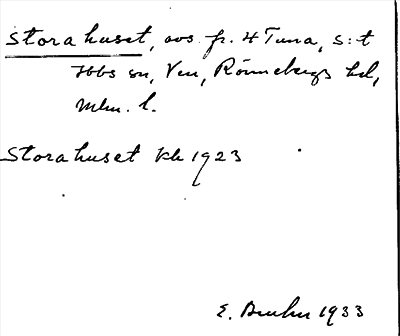 Storahuset, avs. fr. 4 Tuna, S:t
Ibbs sn, Ven, Rönnebergs hd,
Mlm. l.
Storahuset Kk 1923
E. 1933